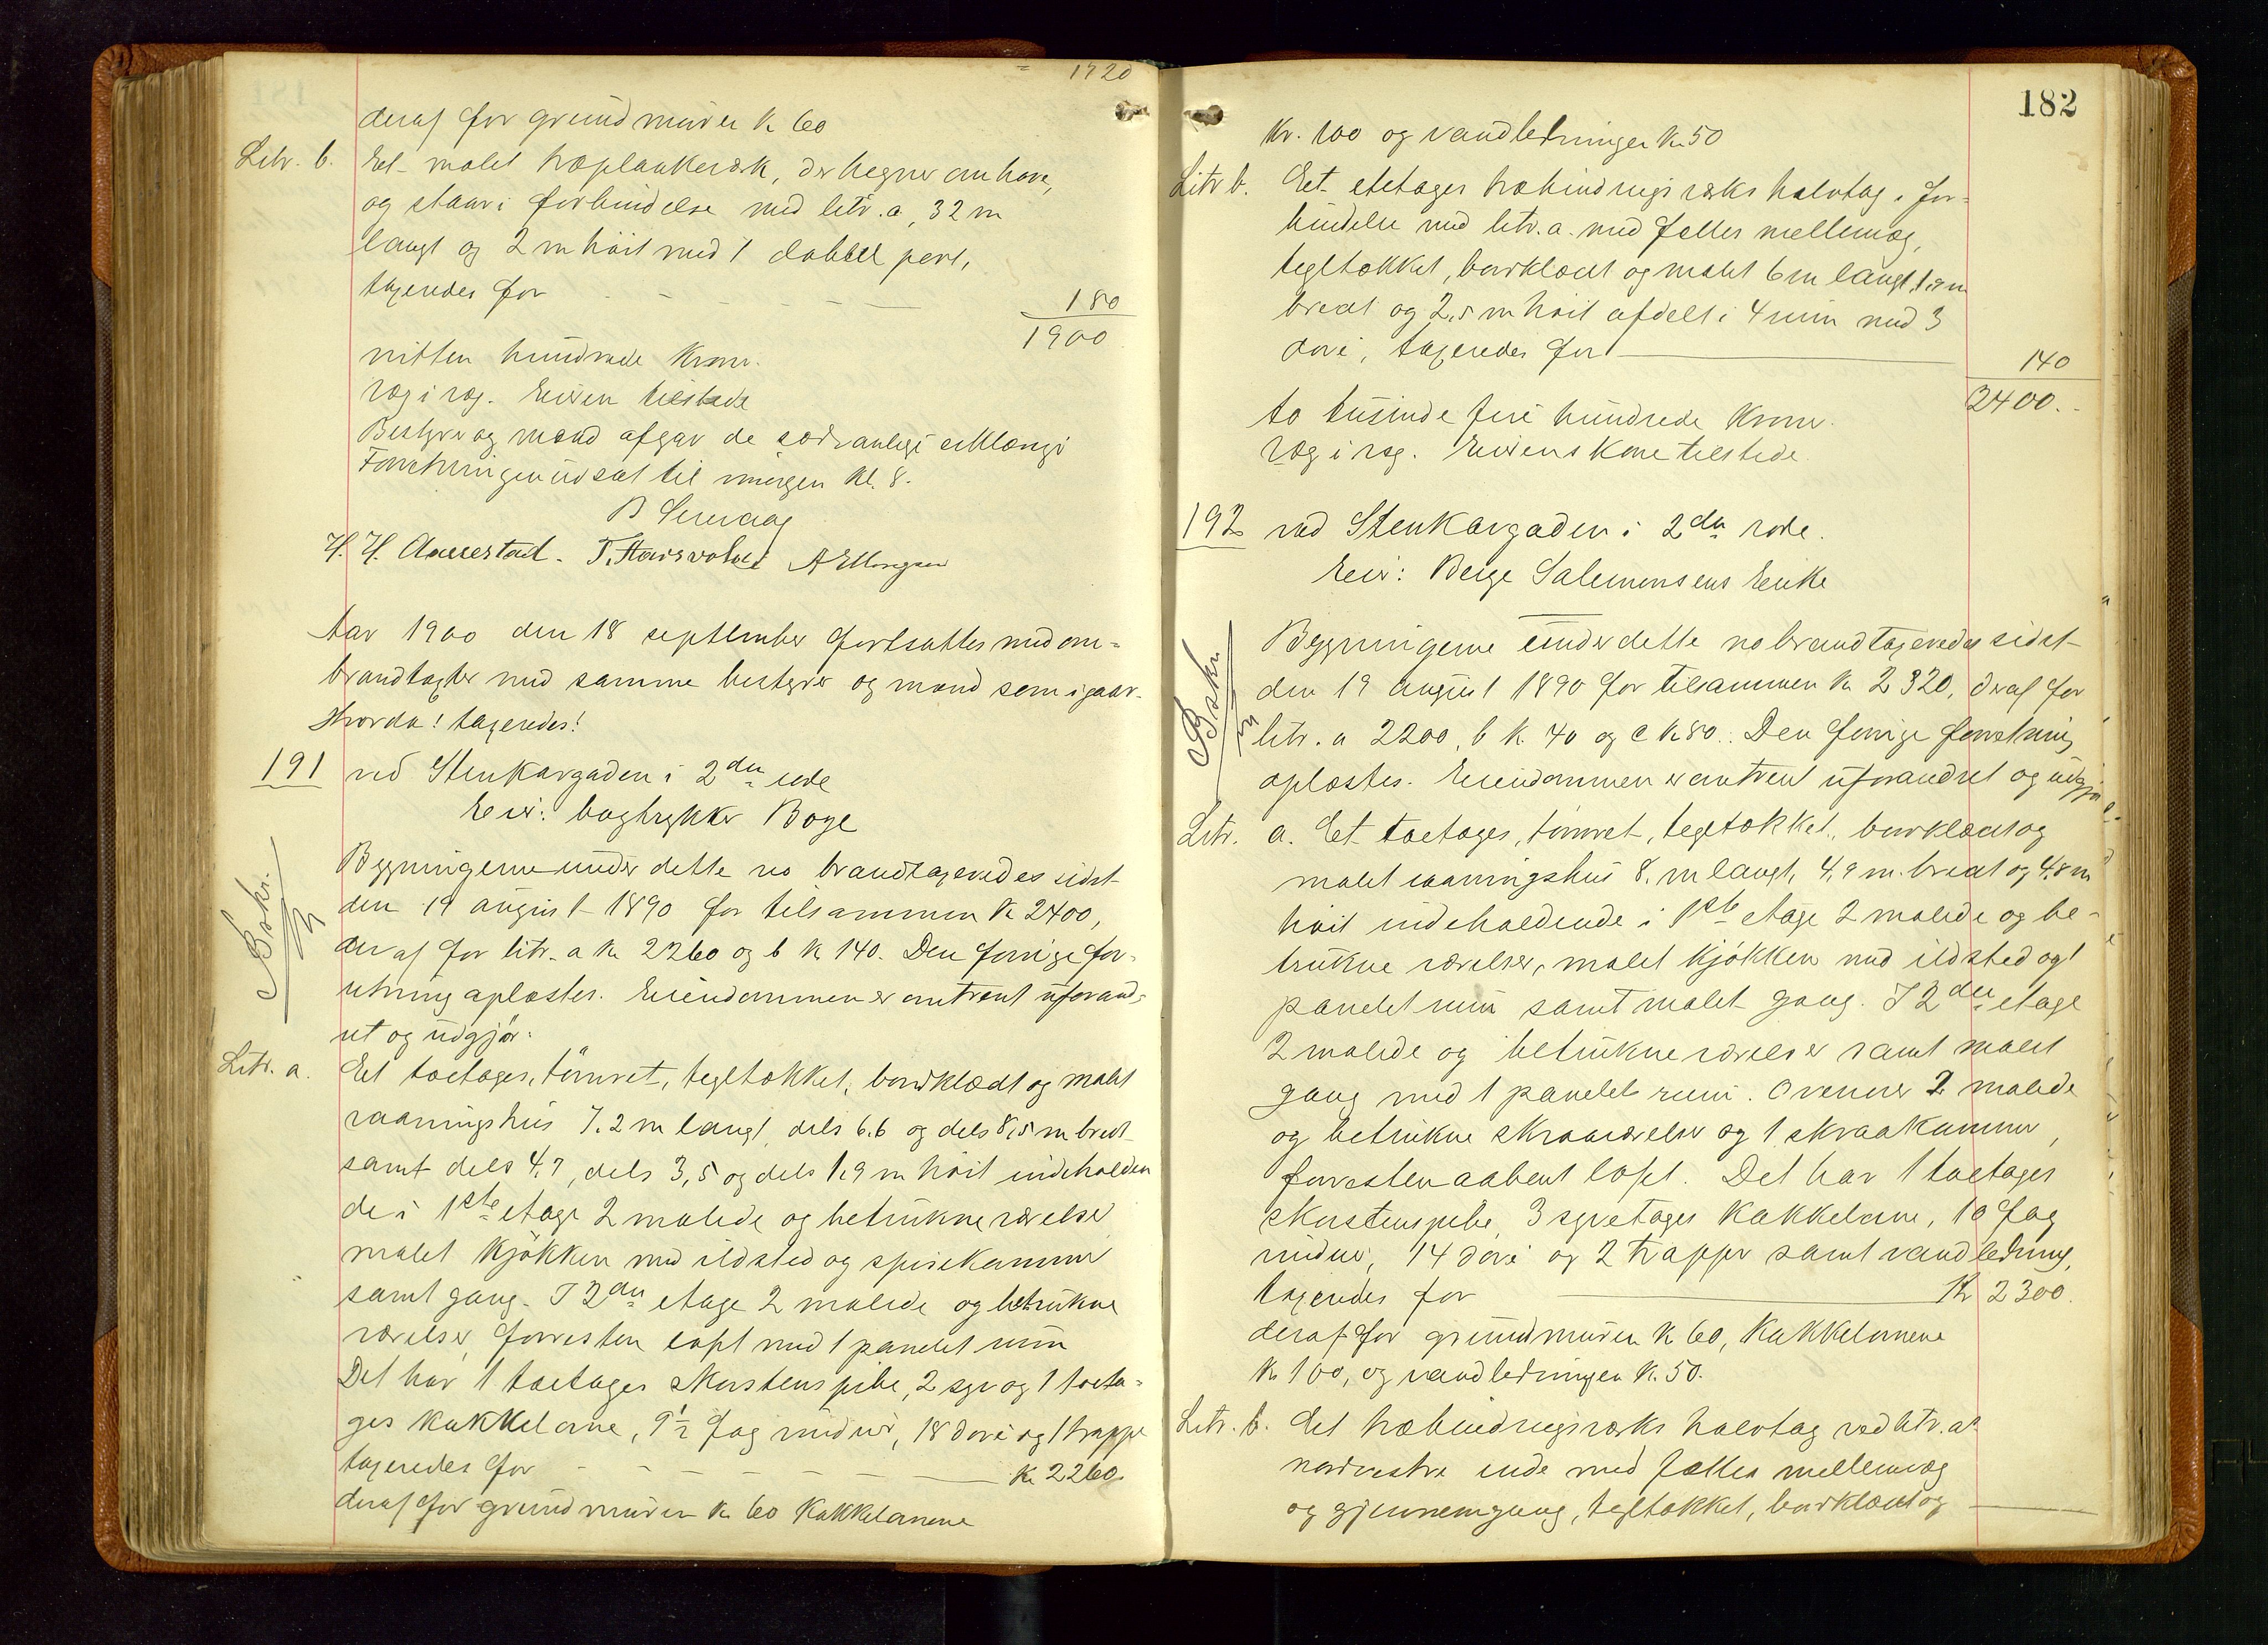 1720
deraf for grundmuren K 60
Litr. b. Et malet træplankeværk, der hegner om have,
og staar i forbindelse med litr. a, 32 m
langt og 2 m høit med 1 dobbelt port,
taxeredes for 180
1900
nitten hundrede Kroner.
Væg i væg. Eieren tilstede
Bestyrer og mænd afgav de sædvanlige erklæringer
Forretningen udsat til imorgen Kl. 8.
H. H. Aarrestad. T. Hairsvolud A Ellingsen
Aar 1900 den 18 september fortsattes med om-
brandtaxter med samme bestyrer og mænd som igaar.
Hvorda! taxeredes!
191 ved Stenkargaden i 2den rode
Eier: bogtrykker Boye
Bskr.
Bygningerne under dette no brandtaxeredes sidst
den 19 august 1890 for tilsammen K 2400,
deraf for litr. a K 2260 og b K 140. Den forrige for-
retning oplæstes. Eiendommen er omtrent uforand-
ret og udgjør:
Litr. a. Et toetages, tømret, tegltækket, bordklædt og malet
vaaningshus 7.2 m langt, dels 6.6 og dels 8,5 m bredt
samt dels 4.7, dels 3,5 og dels 1.9 m høit indeholden
de i 1ste etage 2 malede og betrukne værelser
malet Kjøkken med ildsted og spisekammer
samt gang. I 2den etage 2 malede og betrukne
værelser, forresten loft med 1 panelet rum
Det har 1 toetages skorstenspibe, 2 syv og 1 toeta-
ges kakkelovne, 9½ fag vinduer, 18 døre og 1 trappe
taxeredes for K 2260.
deraf for grundmuren K 60 Kakkelovnene
182
Kr. 100 og vandledningen K 50
Litr b. Et etetages træbindingsværks halvtag i for-
bindelse med litr. a. med fælles mellemvæg,
tegltækket, bordklædt og malet 6 m langt, 1.9 m
bredt og 2,5 m høit afdelt i 4 rum med 3
døre, taxeredes for 140
2400.-
to tusinde fire hundrede Kroner.
Væg i væg. Eierens Kone tilstede.
192 ved Stenkargaden i 2den rode.
Eier: Berge Salomonsens Enke
Bskr.
Bygningerne under dette no brandtaxeredes sidst
den 19 august 1890 for tilsammen K 2320, deraf for
litr. a 2200, b K. 40 og c K 80. Den forrige forretning
oplæstes. Eiendommen er omtrent uforandret og udgjør
Litr. a. Et toetages, tømret, tegltækket, bordklædt og
malet vaaningshus 8. m langt, 4,9 m. bredt og 4,8 m
høit indeholdende i 1ste etage 2 malede og be-
trukne værelser, malet Kjøkken med ildsted og 1
panelet rum samt malet gang. I 2den etage
2 malede og betrukne værelser samt malet
gang med 1 panelet rum. Ovenover 2 malede
og betrukne skraaværelser og 1 skraakammer,
forresten aabent loft. Det har 1 toetages
skorstenspibe, 3 syvetages kakkelovne, 10 fag
vinduer, 14 døre og 2 trapper samt vandledning,
taxeredes for Kr 2300.
deraf for grundmuren K 60, Kakkelovnene
K 100, og vandledningen K. 50.
Litr. b. Et træbindingsværks halvtag ved litr. a's
nordvestre ende med fælles mellemvæg
og gjennemgang, tegltækket, bordklædt og